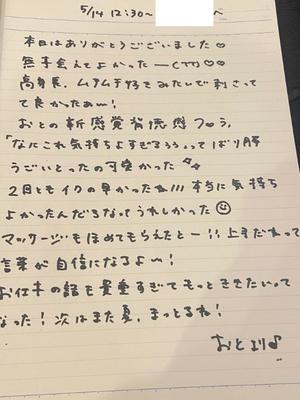 5/14 12:30～ へ
本日はありがとうございました♡
無事会えてよかったー(TT)♡♡
高身長、ムチムチ好きみたいで刺さって
て良かったぁー!
おとの新感覚背徳感フ う、
「なにこれ気持ちよすぎるぅぅ、ってばり腰
うごいとったの可愛かった
2回ともイクの早かったね!!! 本当に気持ち
よかったんだろなってうれしかった☺
マッサージもほめてもらえたとー!! 上手だねって
言葉が自信になるよ〜!
お仕事の話も貴重すぎてもっとききたいって
なった! 次はまた夏、まっとるね!
おとより♪